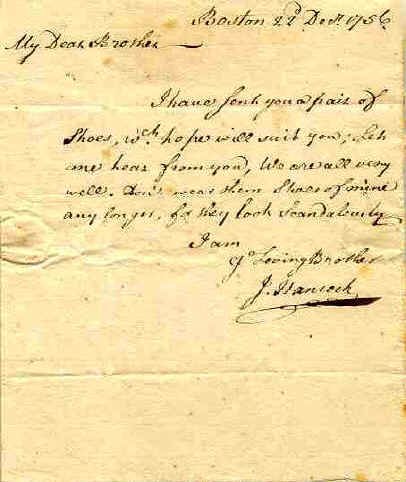 Boston 22d Decr. 1756
My Dear Brother
I have sent you a pair of
Shoes, wch. hope will suit you, Let
me hear from you, We are all very
well. Don't wear them Shoes of mine
any longer, for they look Scandalously
I am
yr. Loving Brother
J. Hancock